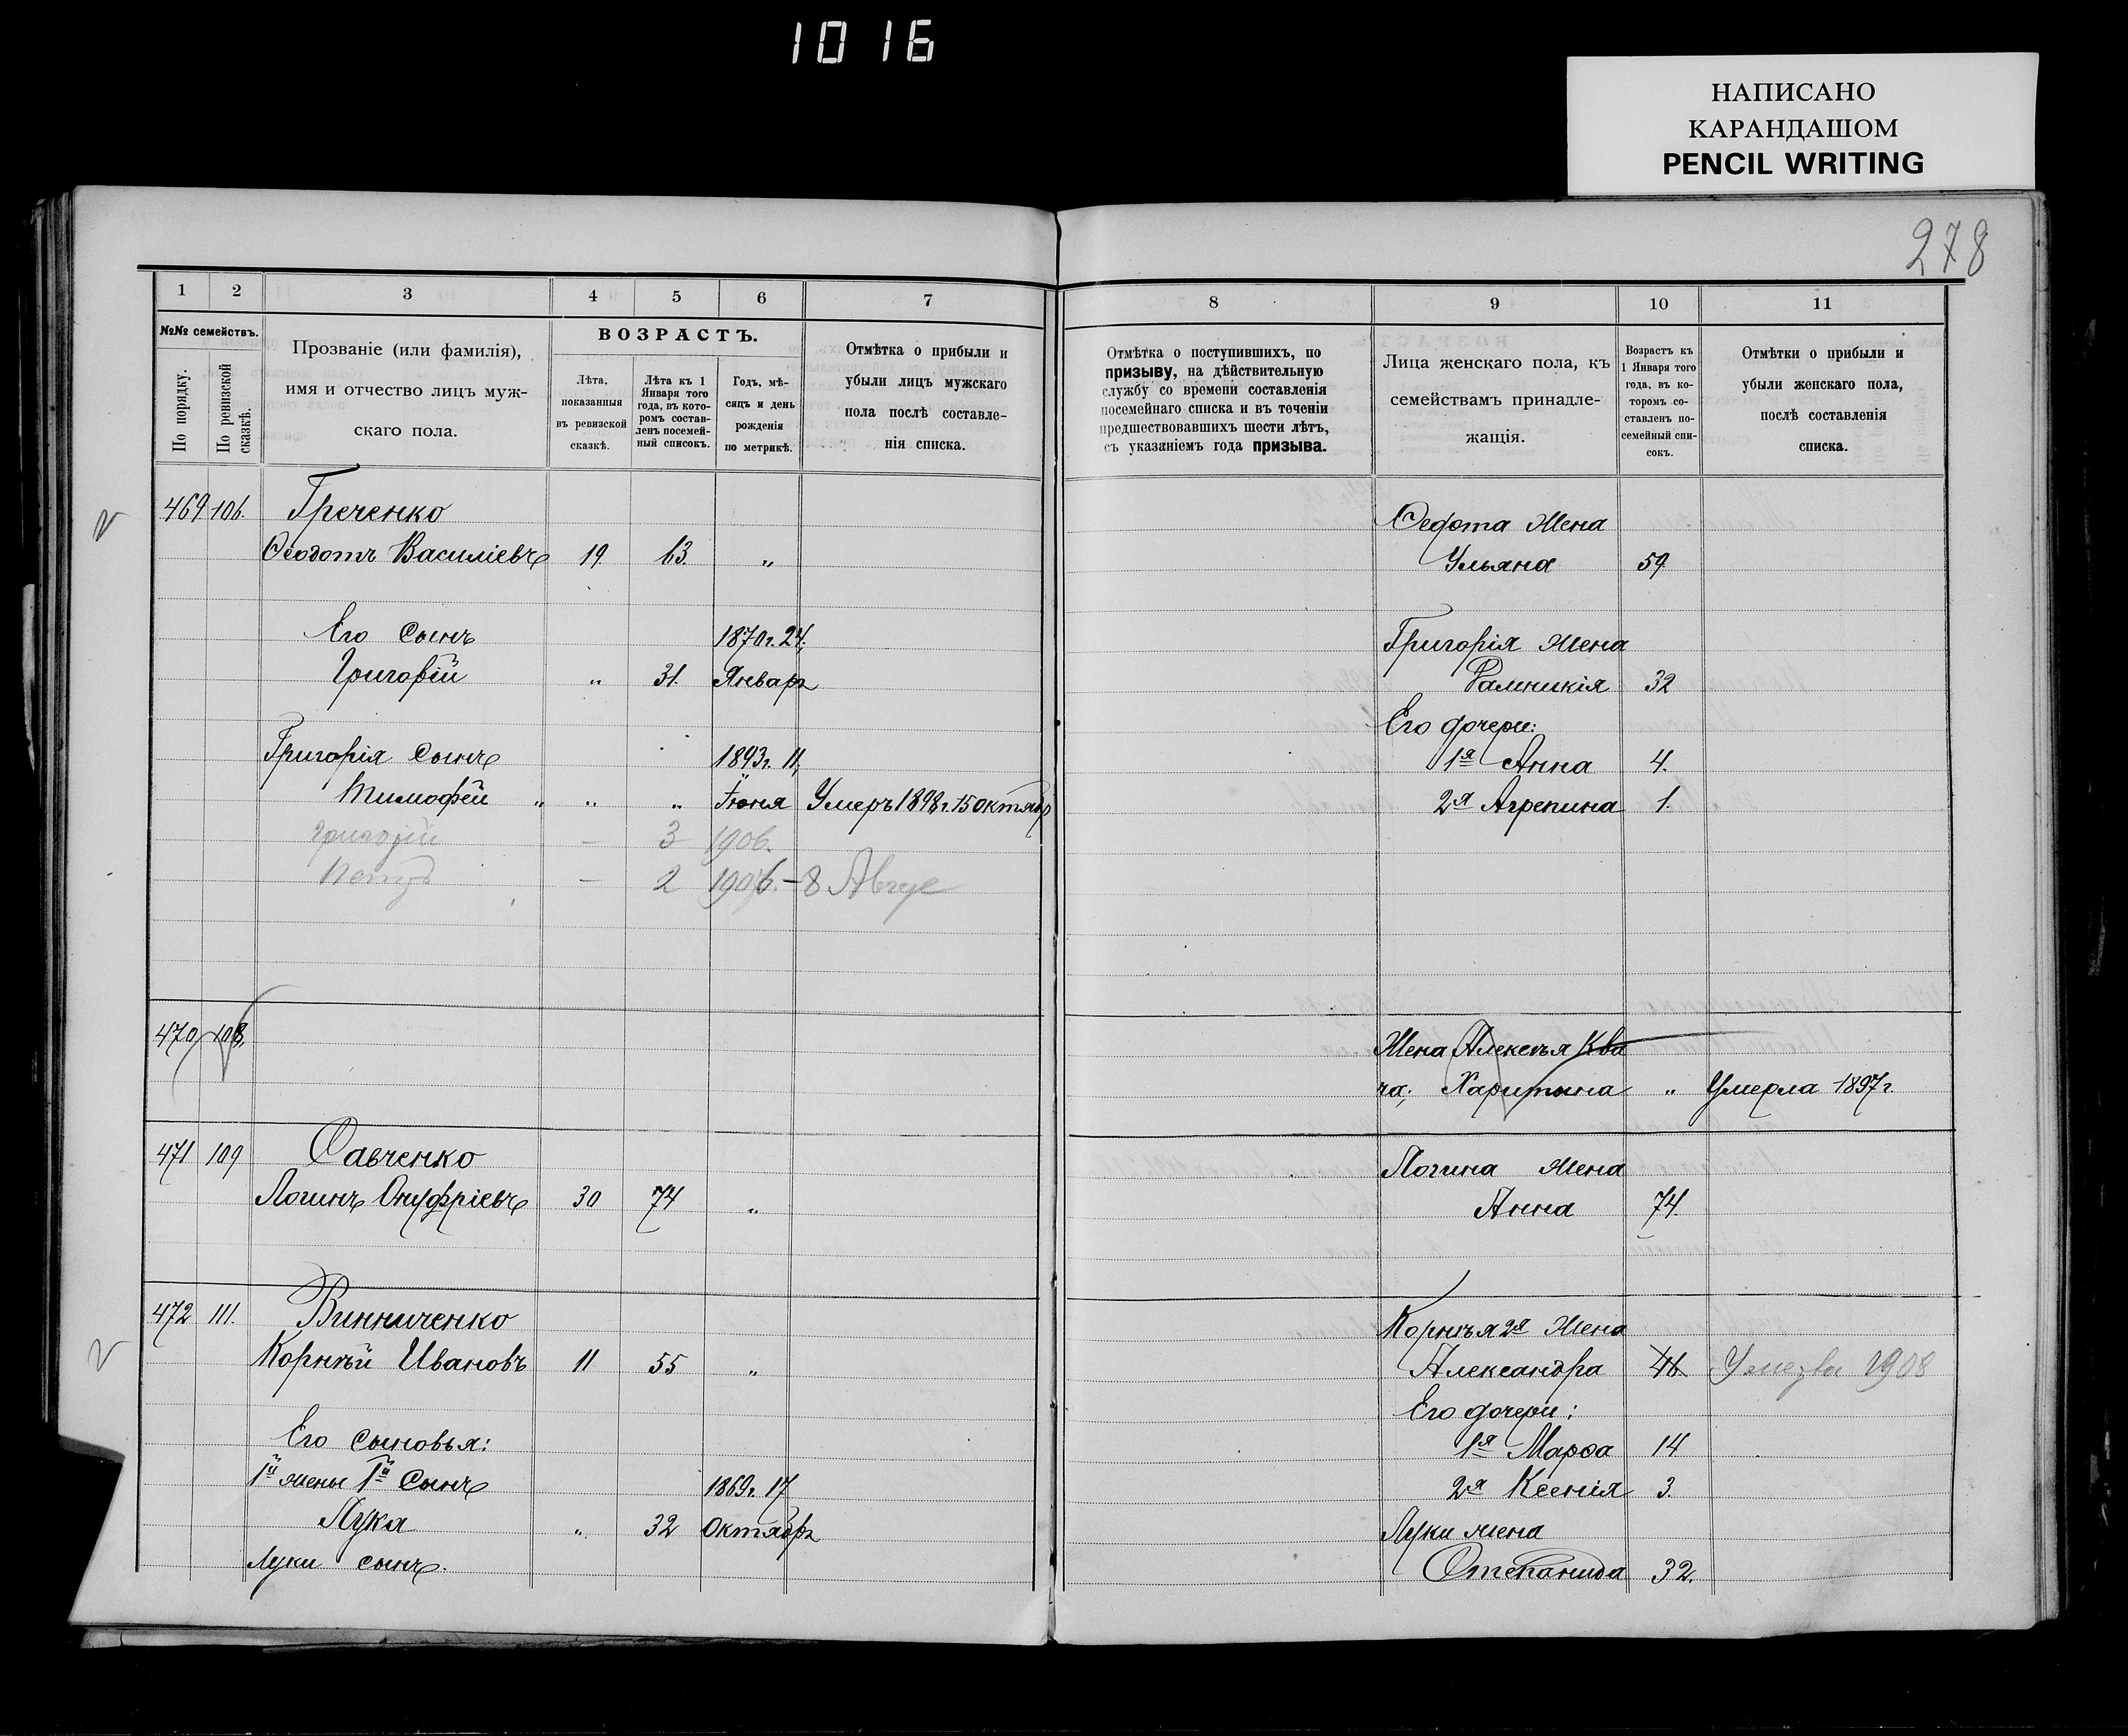 1016
НАПИСАНО
КАРАНДАШОМ
PENCIL WRITING
278
1 2 3 4 5 6 7
№№ семействъ.
По порядку.
По ревизской сказкѣ.
Прозваніе (или фамилія),
имя и отчество лицъ муж-
скаго пола.
ВОЗРАСТЪ.
Лѣта,
показанныя
въ ревизской
сказкѣ.
Лѣта къ 1
Января того
года, въ кото-
ромъ состав-
ленъ посемей-
ный списокъ.
Годъ, мѣ-
сяцъ и день
рожденія
по метрикѣ.
Отмѣтка о прибыли и
убыли лицъ мужскаго
пола послѣ составле-
нія списка.
469 106. Греченко
Ѳеодотъ Василіевъ 19 63. „
Его Сынъ 1870г. 24,
Григорій „ 31. Январь
Григорія Сынъ 1893г. 11,
Тимофей „ „ „ Іюня Умеръ 1898г. 15 октябр
Григорій — 3 1906.
Петръ — 2 1906. — 8 Авгус
470 108.
471 109 Савченко
Логинъ Онуфріевъ 30 74 „
472 111. Винниченко
Корнѣй Ивановъ 11 55 „
Его Сыновья:
1й жены 1й Сынъ 1869г. 17
Лука „ 32 Октябрь
Луки сынъ.
8 9 10 11
Отмѣтка о поступившихъ, по
призыву, на дѣйствительную
службу со времени составленія
посемейнаго списка и въ теченіи
предшествовавшихъ шести лѣтъ,
съ указаніемъ года призыва.
Лица женскаго пола, къ
семействамъ принадле-
жащія.
Возрастъ къ
1 Января того
года, въ ко-
торомъ со-
ставленъ по-
семейный спи-
сокъ.
Отмѣтки о прибыли и
убыли женскаго пола,
послѣ составленія
списка.
Ѳедота Жена
Ульяна 59.
Григорія Жена
32
Его дочери:
1я Анна 4.
2я Агрепина 1.
Жена Алексѣя Ква
ча; Харитына „ Умерла 1897г.
Логина Жена
Анна 74.
Корнѣя 2я Жена
Александра 46. Умерла 1908
Его дочери:
1я Марѳа 14
2я Ксенія 3.
Луки жена
Степанида 32.